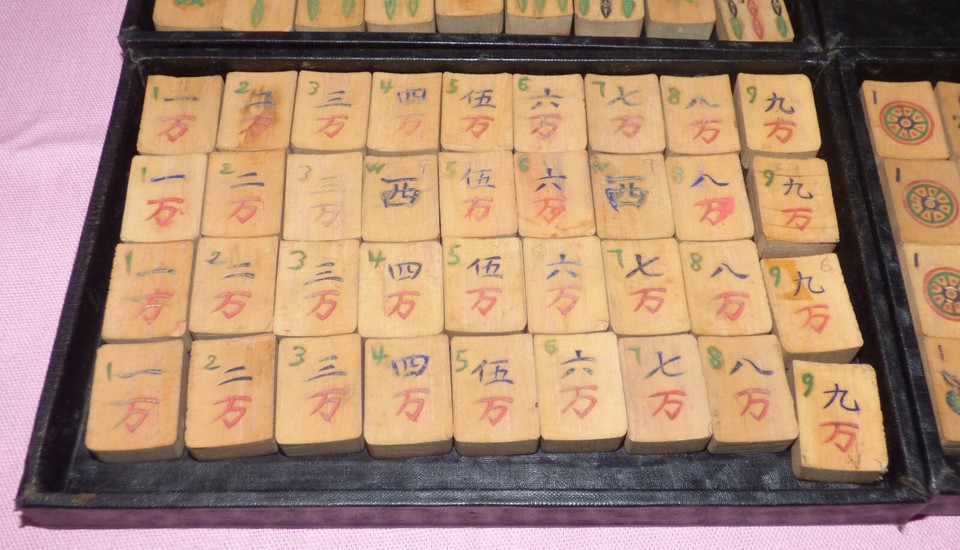 1 一 2 二 3 三 4 四 5 伍 6 六 7 七 8 八 9 九 1
万 万 万 万 万 万 万 万 万
1 一 2 二 3 三 W 西 5 伍 6 六 W 西 8 八 9 九 1
万 万 万 万 万 万 万
1 一 2 二 3 三 4 四 5 伍 6 六 7 七 8 八 9 九 1
万 万 万 万 万 万 万 万 万
1 一 2 二 3 三 4 四 5 伍 6 六 7 七 8 八 9 九 1
万 万 万 万 万 万 万 万 万